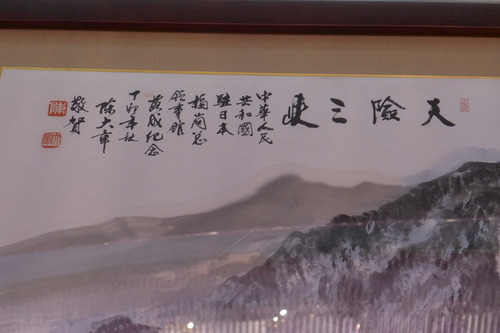 天險三峽
中華人民
共和國
駐日本
福岡总
領事館
落成紀念
丁卯年秋
陈大章
敬賀